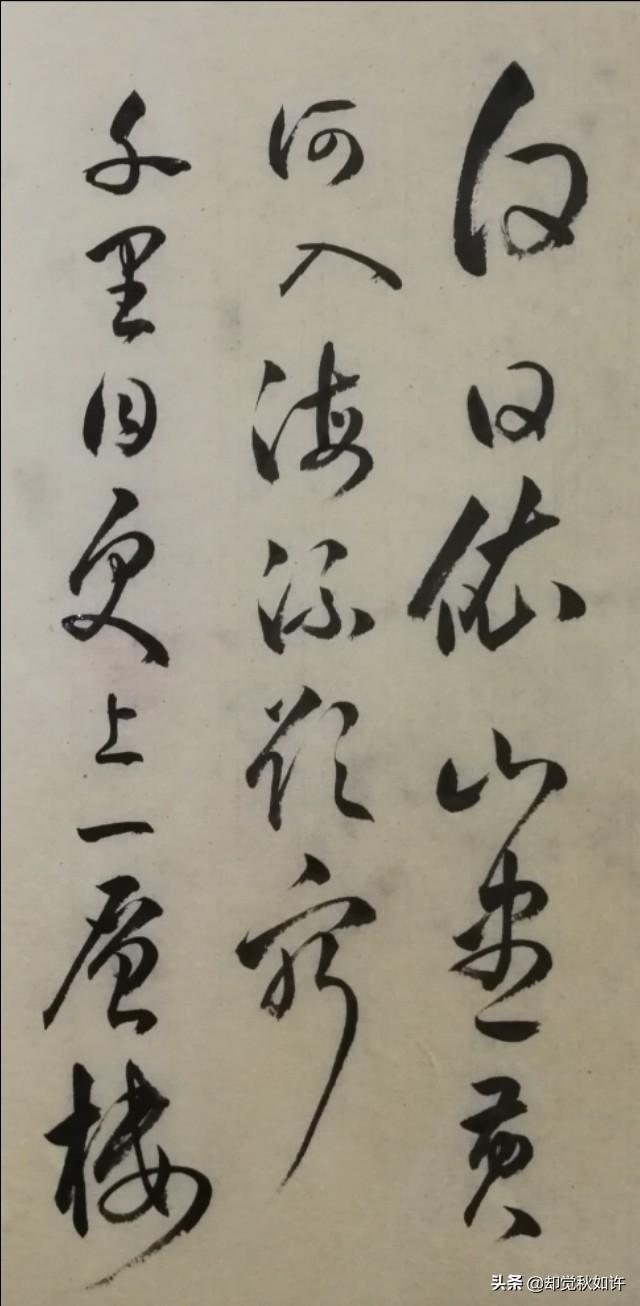 白日依山尽黄
河入海流欲穷
千里目更上一层楼
头条 @却觉秋如许